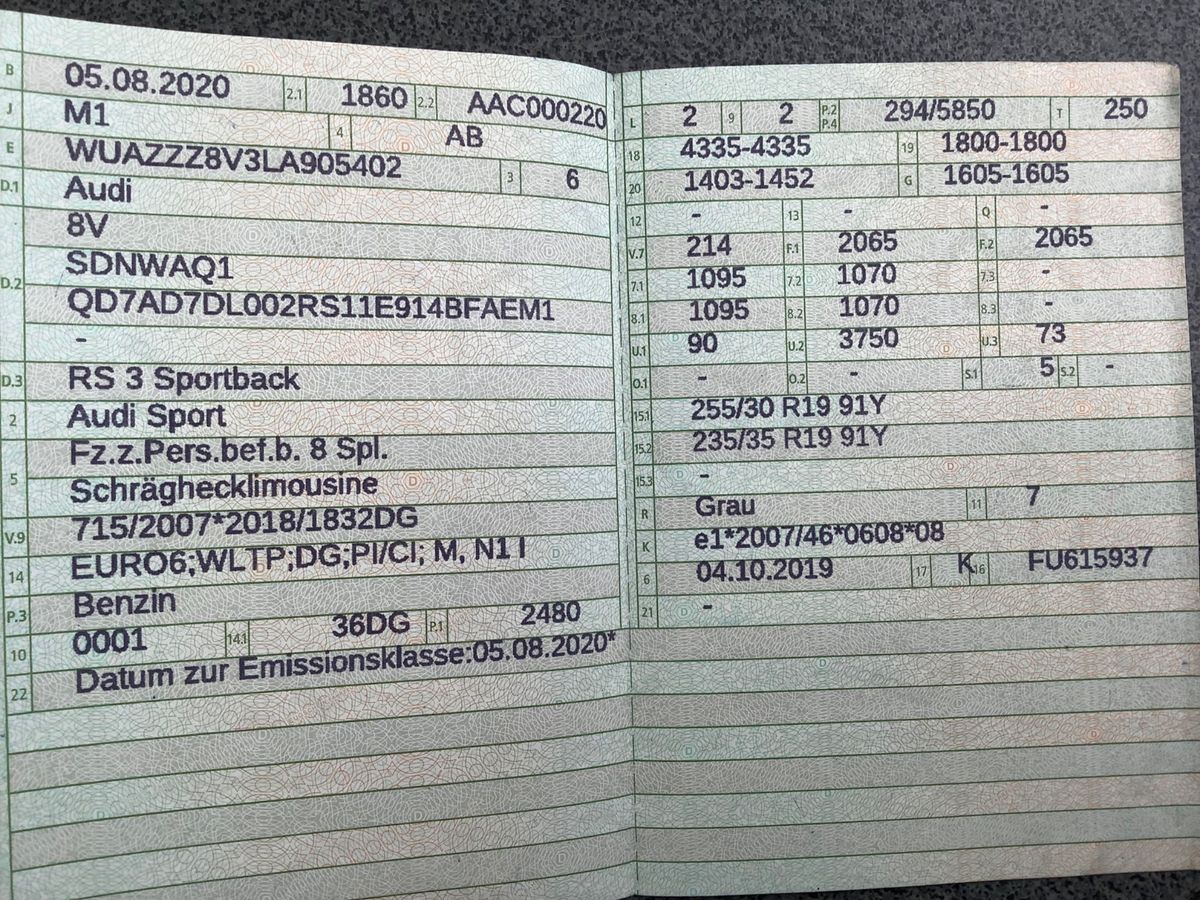 B 05.08.2020 2.1 1860 2.2 AAC000220
J M1 4 AB
E WUAZZZ8V3LA905402 3 6
D.1 Audi
8V
D.2 SDNWAQ1
QD7AD7DL002RS11E914BFAEM1
-
D.3 RS 3 Sportback
2 Audi Sport
5 Fz.z.Pers.bef.b. 8 Spl.
Schräghecklimousine
V.9 715/2007*2018/1832DG
14 EURO6;WLTP;DG;PI/CI; M, N1 I
P.3 Benzin
10 0001 14.1 36DG P.1 2480
22 Datum zur Emissionsklasse:05.08.2020*
L 2 9 2 P.2 P.4 294/5850 T 250
18 4335-4335 19 1800-1800
20 1403-1452 G 1605-1605
12 - 13 - Q -
V.7 214 F.1 2065 F.2 2065
7.1 1095 7.2 1070 7.3 -
8.1 1095 8.2 1070 8.3 -
U.1 90 U.2 3750 U.3 73
O.1 - O.2 - S.1 5 S.2 -
15.1 255/30 R19 91Y
15.2 235/35 R19 91Y
15.3 -
R Grau 11 7
K e1*2007/46*0608*08
6 04.10.2019 17 K 16 FU615937
21 -